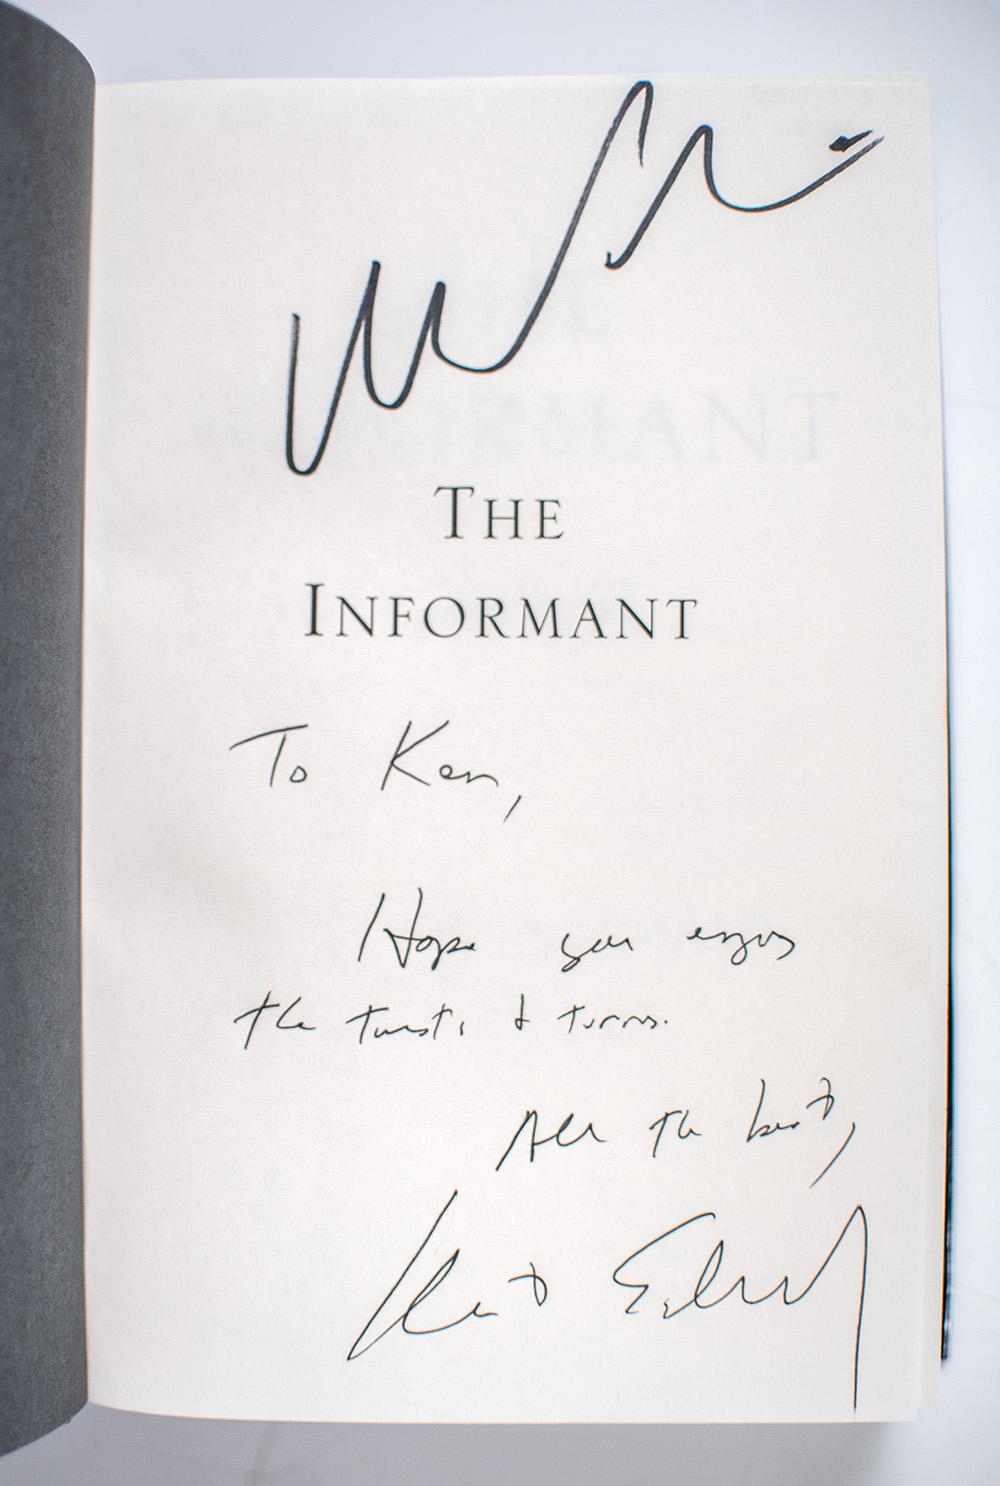 THE
INFORMANT
To Ken,
Hope you enjoy
the twists & turns.
All the best,
Kurt Eichenwald